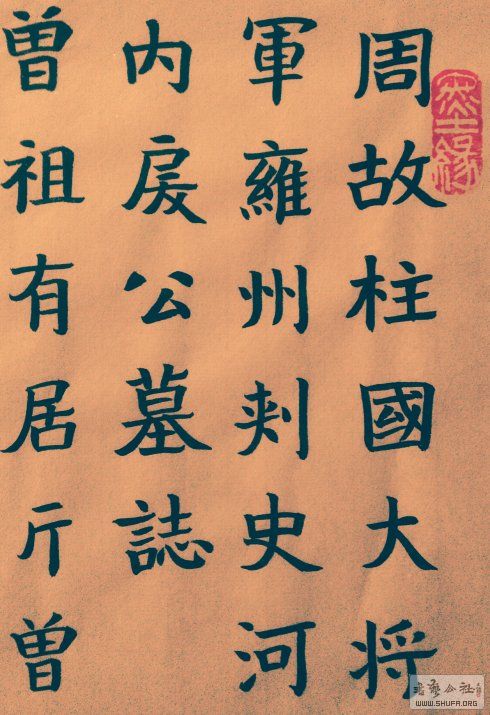 周故柱國大将
軍雍州刾史河
内戾公墓誌
曾祖有居斤曾
書藝公社
WWW.SHUFA.ORG